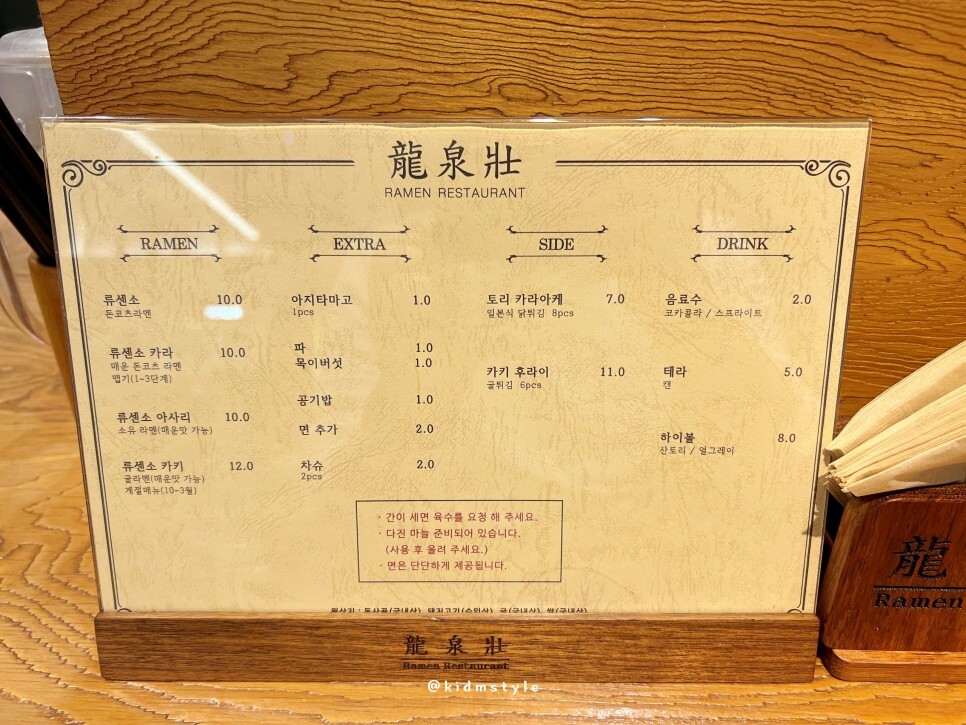 龍泉壯
RAMEN RESTAURANT
RAMEN
류센소 10.0
돈코츠라멘
류센소 카라 10.0
매운 돈코츠 라멘
맵기(1~3단계)
류센소 아사리 10.0
소유 라멘(매운맛 가능)
류센소 카키 12.0
굴라멘(매운맛 가능)
계절메뉴(10~3월)
EXTRA
아지타마고 1.0
1pcs
파 1.0
목이버섯 1.0
공기밥 1.0
면 추가 2.0
차슈 2.0
2pcs
SIDE
토리 카라아케 7.0
일본식 닭튀김 8pcs
카키 후라이 11.0
굴튀김 6pcs
DRINK
음료수 2.0
코카콜라 / 스프라이트
테라 5.0
캔
하이볼 8.0
산토리 / 얼그레이
· 간이 세면 육수를 요청 해 주세요.
· 다진 마늘 준비되어 있습니다.
(사용 후 올려 주세요.)
· 면은 단단하게 제공됩니다.
원산지 : 돈사골(국내산) 돼지고기(수입산) 굴(국내산) 쌀(국내산)
龍泉壯
Ramen Restaurant
@kidmstyle
龍
Ramen